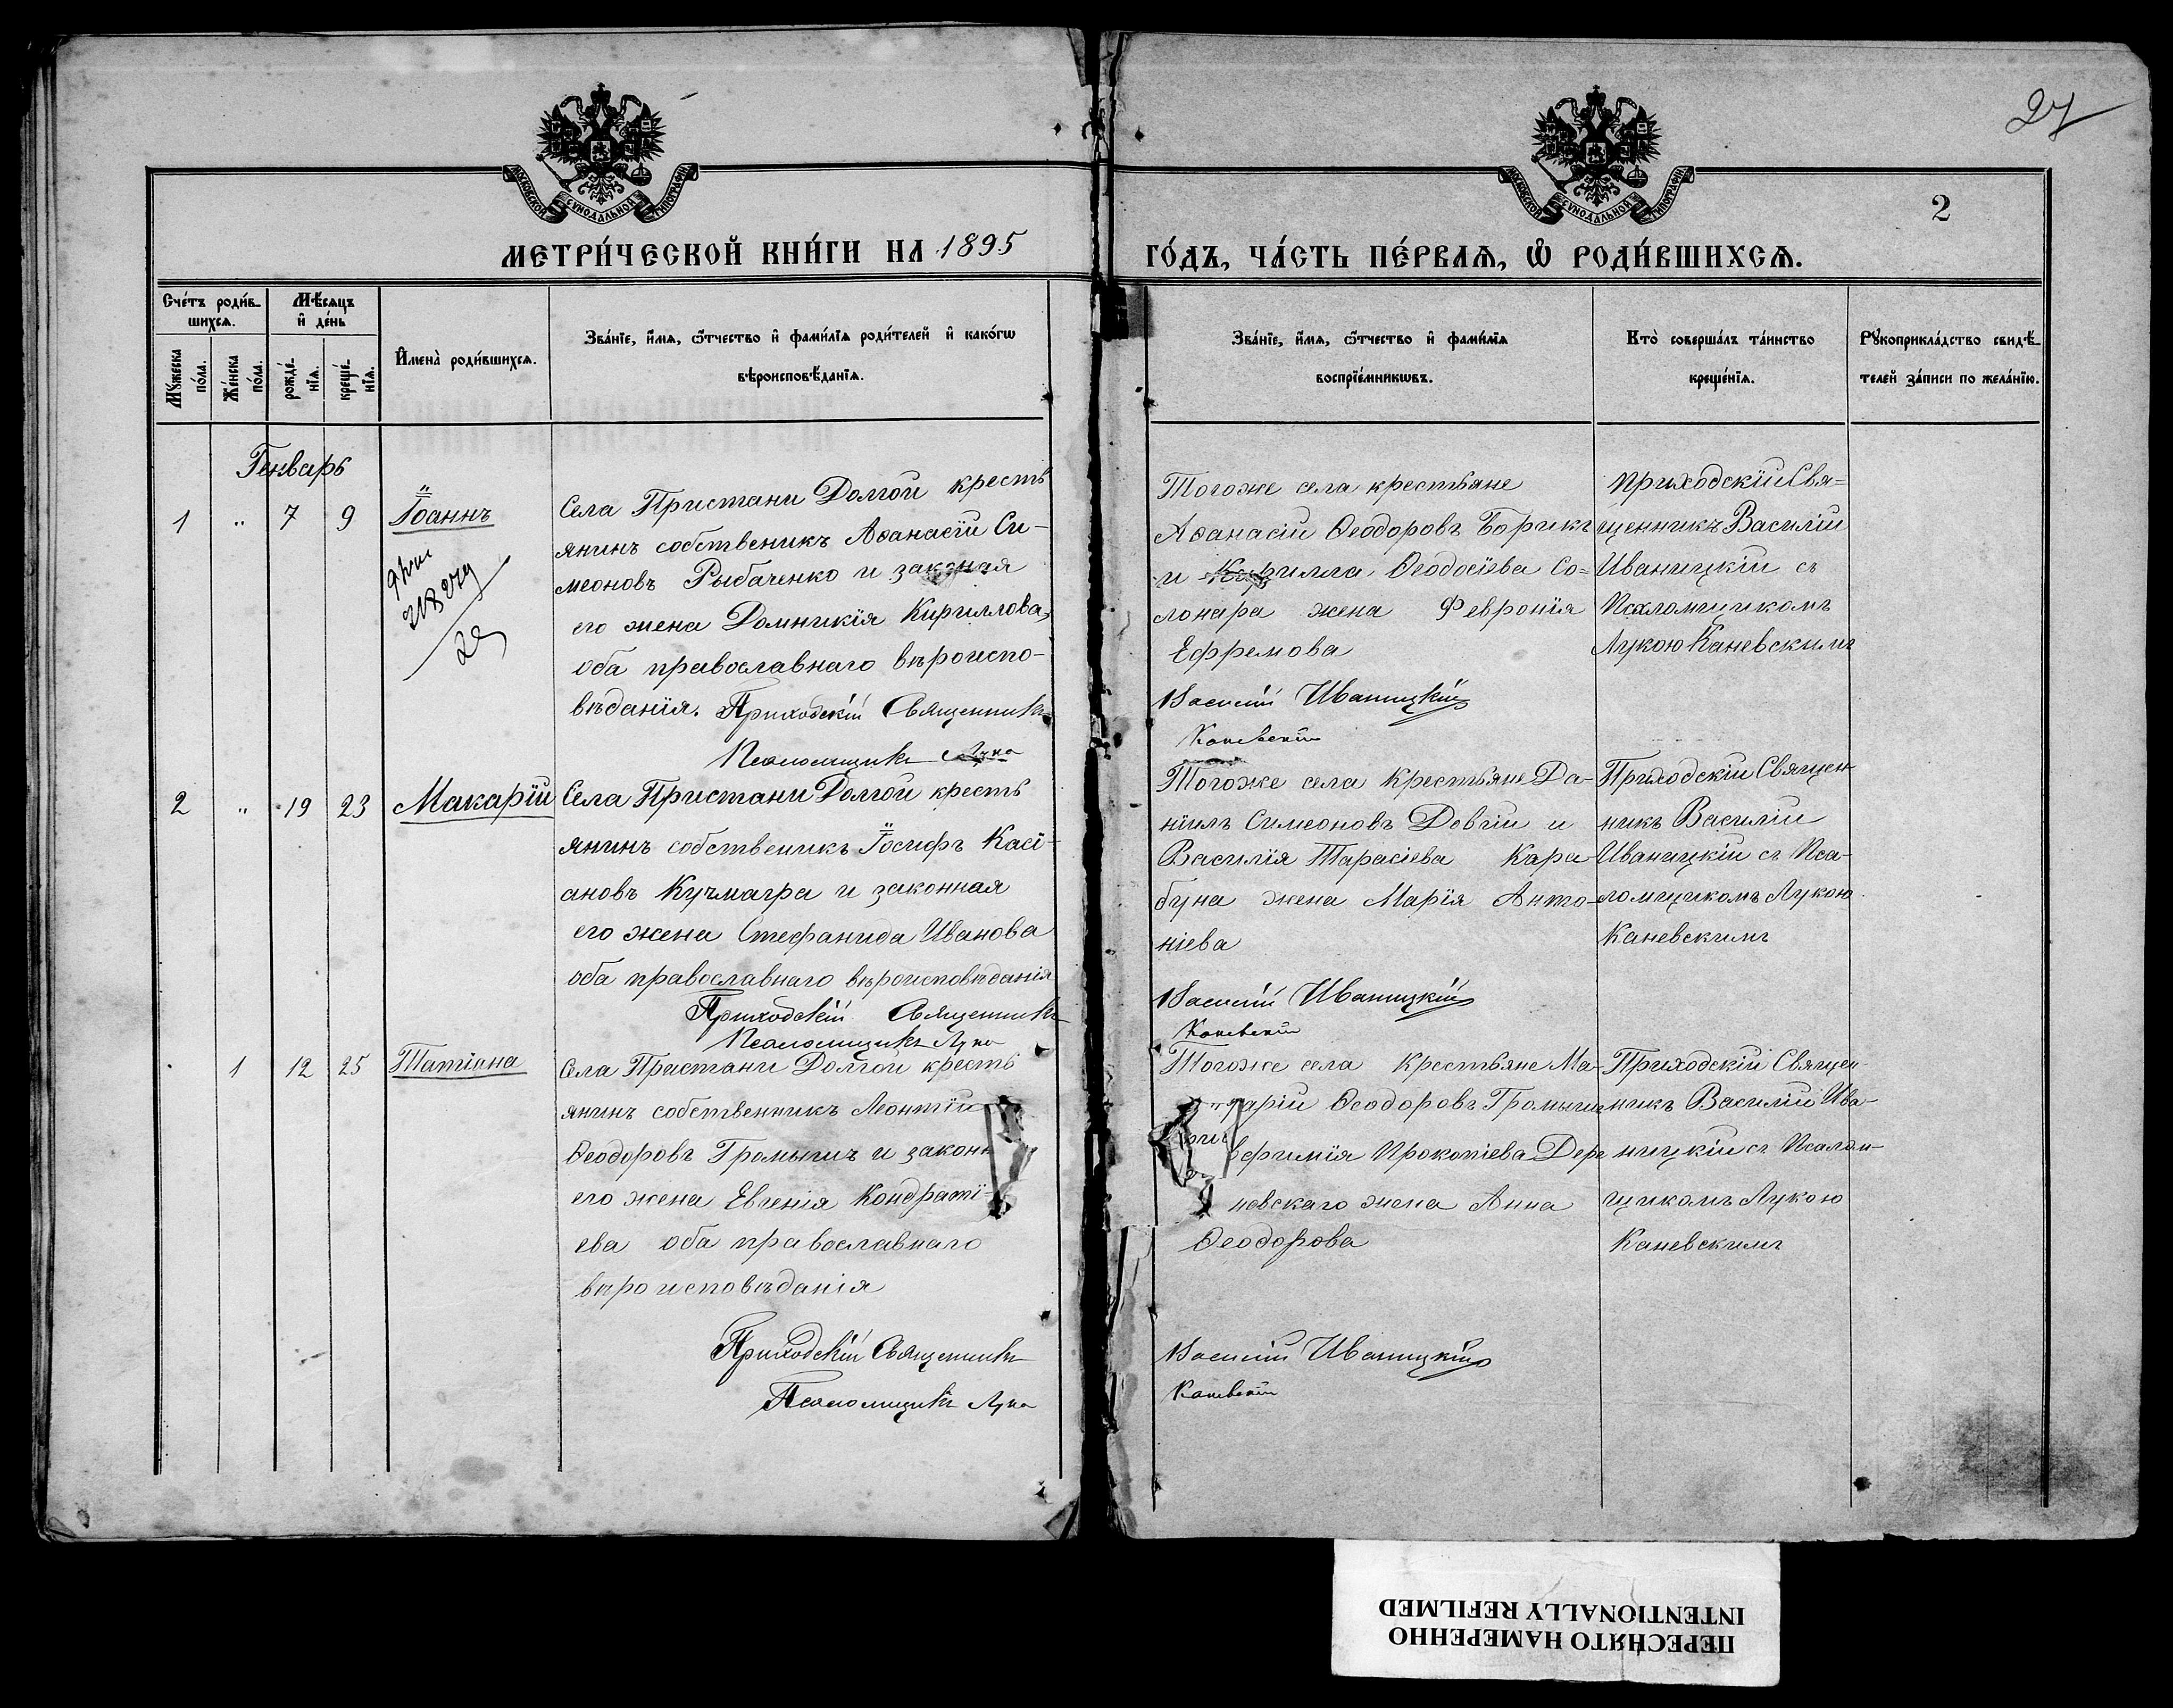 27
МОСКОВСКОЙ СѴНОДАЛЬНОЙ ТИПОГРАФІИ
МОСКОВСКОЙ СѴНОДАЛЬНОЙ ТИПОГРАФІИ
2
МЕТРИ́ЧЕСКОЙ КНИ́ГИ НА 1895
ГО́ДЪ, ЧА́СТЬ ПЕ́РВАѦ, Ѽ РОДИ́ВШИХСѦ.
Сче́тъ роди́в-
шихсѧ.
Мꙋжеска
по́ла.
Же́нска
по́ла.
Мѣ́сѧцъ
и҆ де́нь
рожде́-
нїѧ.
креще́-
нїѧ.
И҆мена̀ роди́вшихсѧ.
Зва́нїе, и҆́мѧ, ѻ҆́тчество и҆ фами́лїѧ роди́телей и҆ како́гѡ
вѣроисповѣ́данїѧ.
Зва́нїе, и҆́мѧ, ѻ҆́тчество и҆ фами́лїѧ
воспрїе́мникѡвъ.
Кто̀ соверша́лъ та́инство
креще́нїѧ.
Рꙋкоприкла́дство свидѣ́-
телей за́писи по жела́нїю.
Генварь
1 „ 7 9 Іоаннъ
Села Пристани Долгой кресть
янинъ собственикъ Аѳанасій Си-
меоновъ Рыбаченко и законая
его жена Домникія Кириллова,
оба православнаго вѣроиспо-
вѣданія. Приходскій Священникъ
Псаломщикъ Лука
Тогоже села крестьяне
Аѳанасій Ѳеодоровъ Борикъ
и Кирилла Ѳеодосіева Со-
лонара жена Февронія
Ефремова
Василій Иваницкій
Каневскій
Приходскій Свя-
щенникъ Василій
Иваницкій съ
Псаломщикомъ
Лукою Каневскимъ
2 „ 19 23 Макарій
Села Пристани Долгой кресть
янинъ собственикъ Іосифъ Касі-
ановъ Кучмагра и законная
его жена Стефанида Иванова
оба православнаго вѣроисповѣданія
Приходскій Священникъ
Псаломщикъ Лука
Тогоже села крестьяне Да-
ніилъ Симеоновъ Довгій и
Василія Тарасіева Кара-
буна жена Марія Анто-
ніева
Василій Иваницкій
Каневскій
Приходскій Священ
никъ Василій
Иваницкій съ Пса-
ломщикомъ Лукою
Каневскимъ
1 12 25 Татіана
Села Пристани Долгой кресть
янинъ собственникъ Леонтій
Ѳеодоровъ Громычъ и законн
его жена Евгенія Кондраті-
ева оба православнаго
вѣроисповѣданія
Приходскій Священникъ
Псаломщикъ Лука
Тогоже села крестьяне Ма-
карій Ѳеодоровъ Громычъ
Евфимія Прокопіева Дер
новскаго жена Анна
Ѳеодорова
Василій Иваницкій
Каневскій
Приходскій Священ-
никъ Василій Ива-
ницкій съ Псалом-
щикомъ Лукою
Каневскимъ
ПЕРЕСНЯТО НАМЕРЕННО
INTENTIONALLY REFILMED